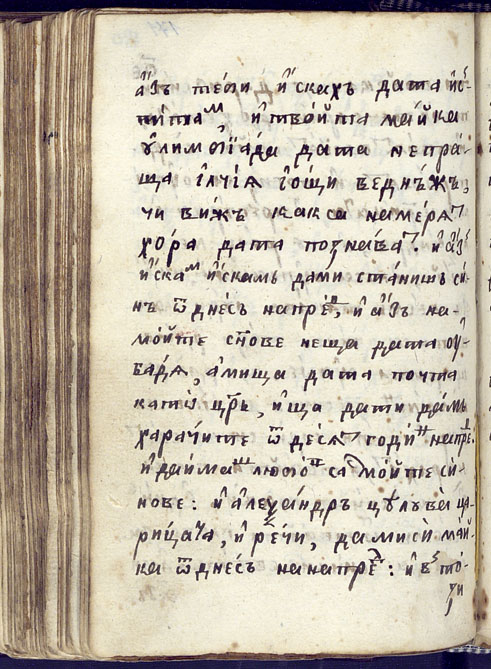 а҆́зъ теѳи и҆скахъ дата и҆с-
пита^м и҆твои҆та ма́и҆ка
ѹ҆лимбїада дата непра́-
ща і҆лчїѧ і҆о҆щи веднѫжъ,
чи ви́жъ какса наме́рѧ^т
хо́ра дата познава́^т. и҆а҆^з
и҆ска^м и҆скамь дами ста́нишъ си-
нъ ѿдне́съ напре́^д, и҆а҆зъ на-
мои҆те сн҃ове неща дата ѹ҆-
ба́рѧ, а҆мища дата почта
като̀ цр҃ь, и҆ща дати да́мъ
харачите ѿ десѧ^т годи^н напре^д.
и҆даи҆ма^ш любо^в са^с мои҆те си-
нове: и҆але҆ѯа́ндръ цѹлува ца-
ри́цата, и҆ ре́чи, дамиси̇ ма́и҆-
ка ѿдне́съ нанапре^д: и҆ в то́-
зи